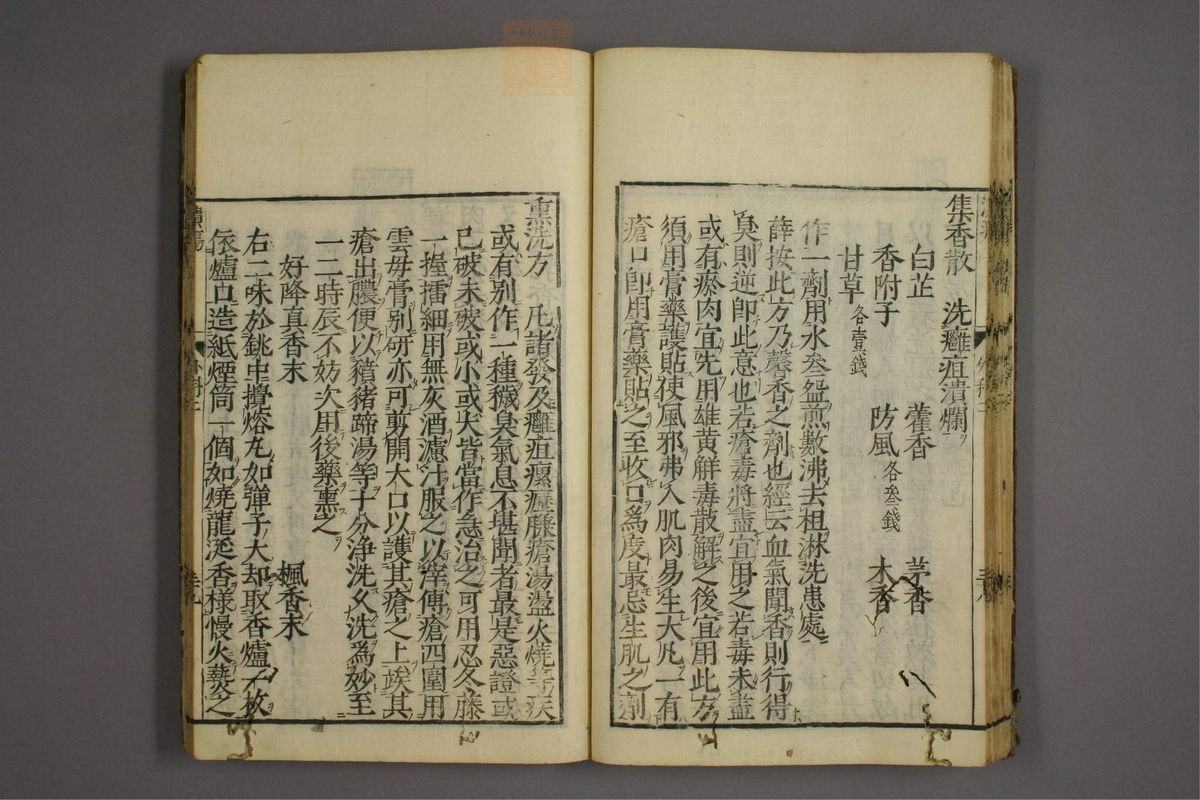 集香散　洗癰疽潰爛
白芷　藿香　茅香
香附子　防風各叁錢　木香
甘草各壹錢
作一劑用水叁盌煎數沸去柤淋洗患處
薛按此方乃馨香之劑也經云血氣聞香則行得
臭則逆卽此意也若瘡毒將盡宜用之若毒未盡
或有瘀肉宜先用雄黄解毒散解之後宜用此方
須用膏藥護貼使風邪弗入肌肉易生大凡一有
瘡口卽用膏藥貼之至收口爲度最忌生肌之劑
熏洗方　凡諸發及癰疽瘰癧臁瘡湯盪火燒等疾
或有别作一種穢臭氣息不堪聞者最是惡證或
已破未破或小或大皆當作急治之可用忍冬藤
一握擂細用無灰酒濾汁服之以滓傅瘡四圍用
雲母膏别研亦可剪開大口以護其瘡之上俟其
瘡出膿便以豶豬蹄湯等十分浄洗久洗爲妙至
一二時辰不妨次用後藥熏之
好降真香末　楓香末
右二味於銚中攪熔丸如彈子大却取香爐一枚
依爐口造紙煙筒一個如燒龍涎香樣慢火爇之
外科二